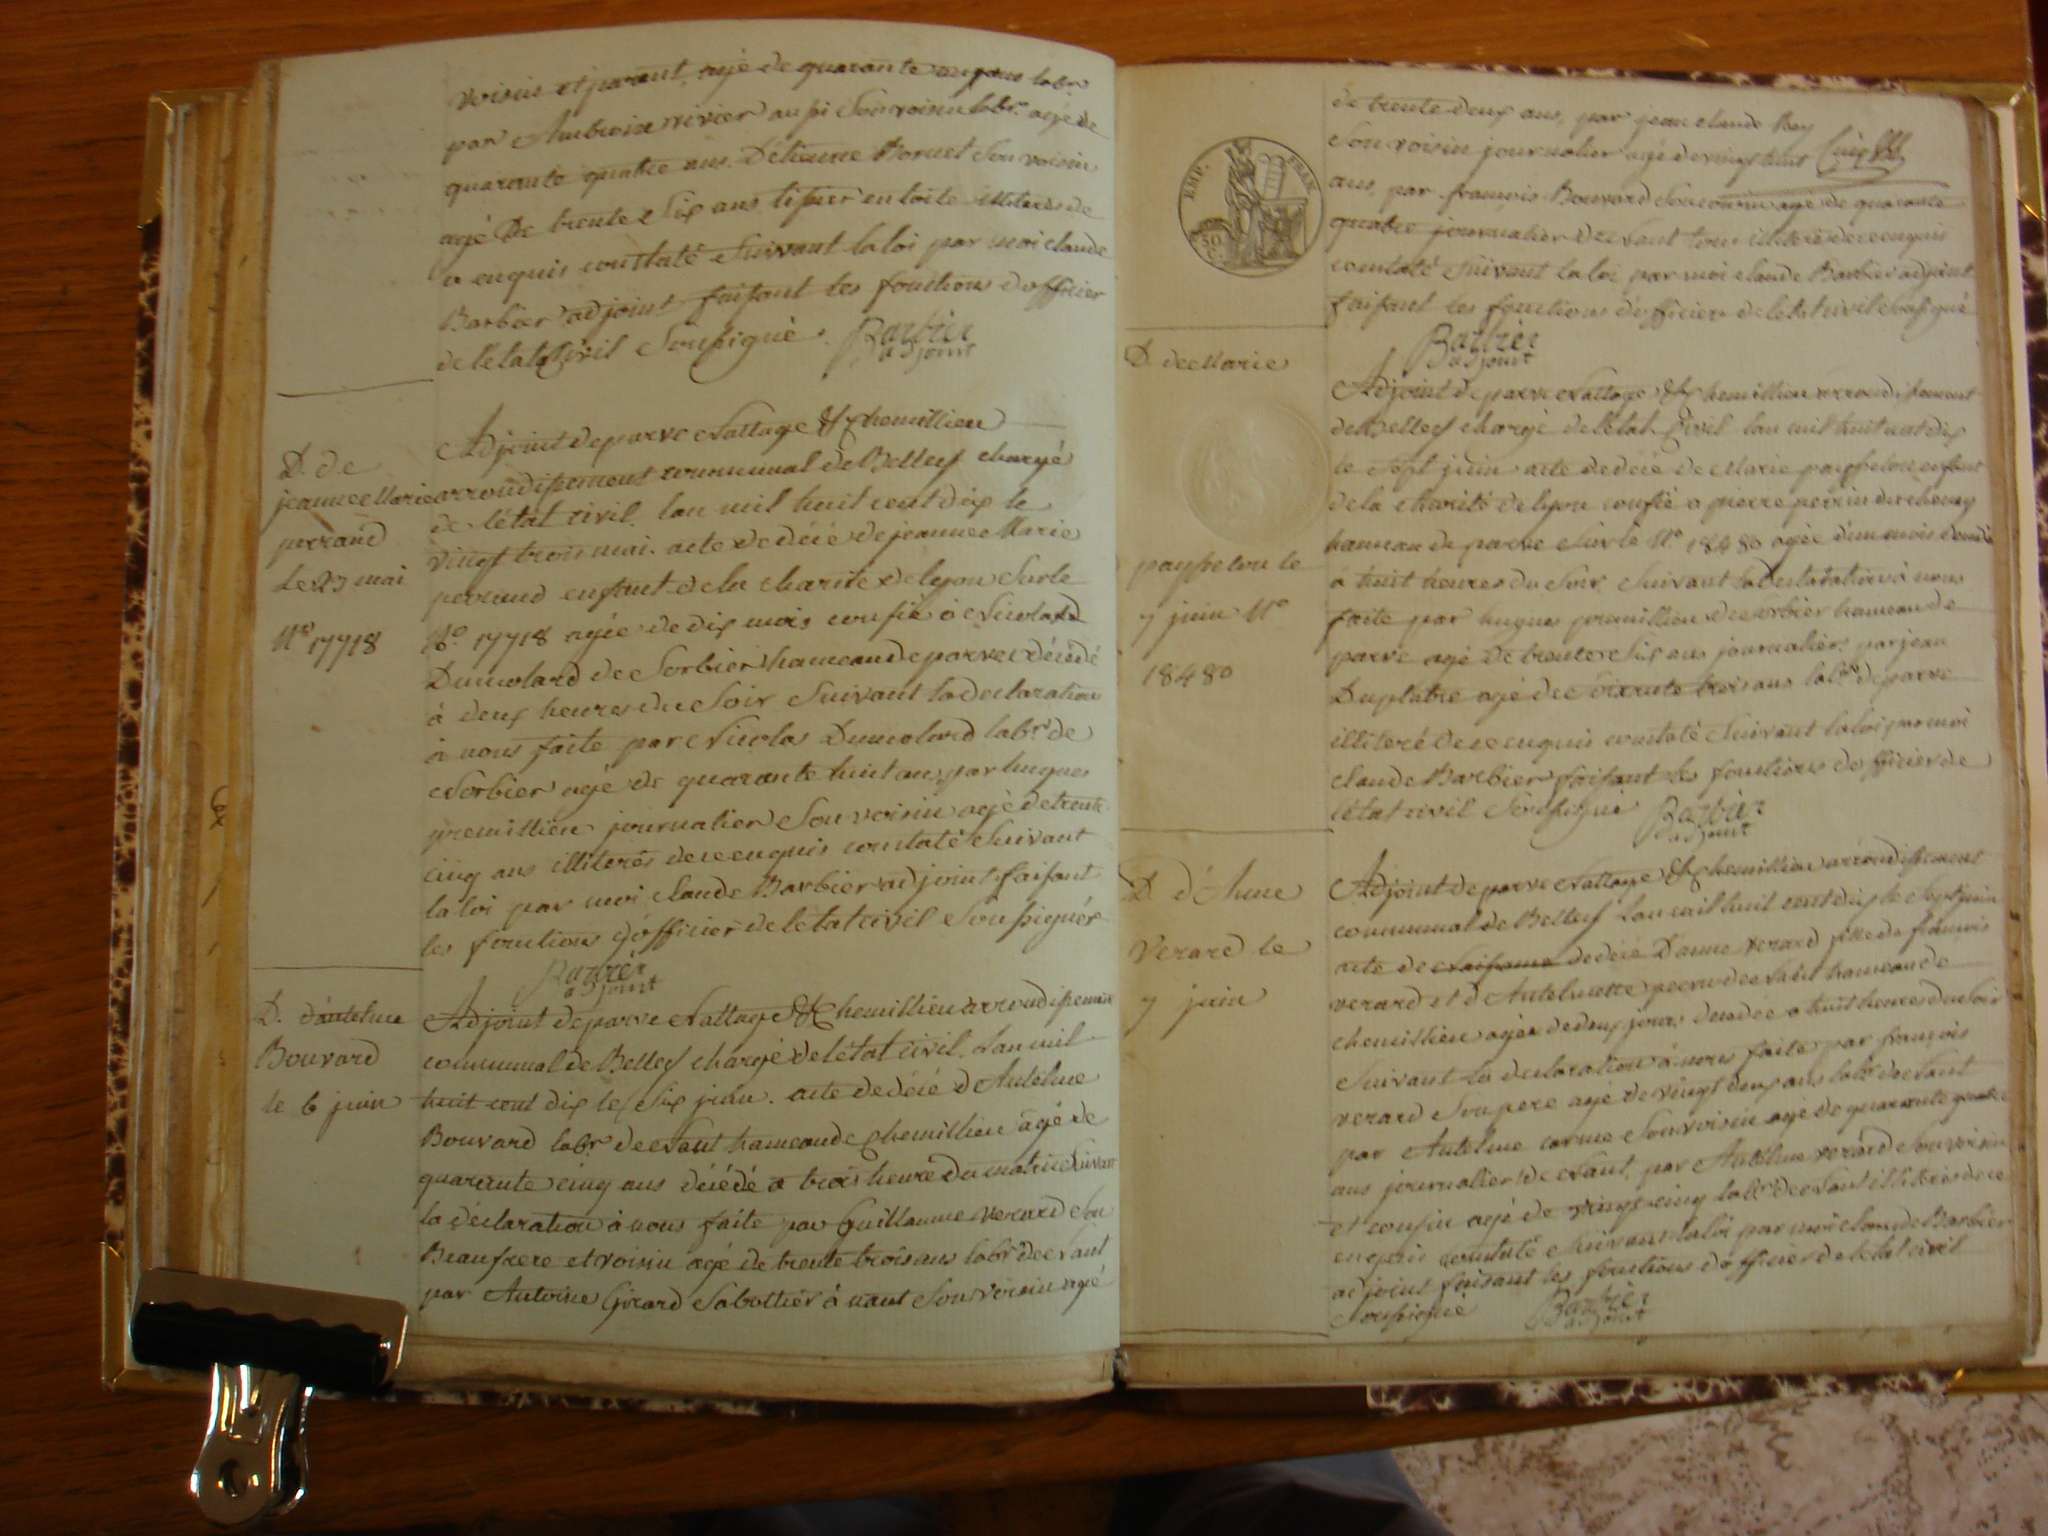 voisin et parent agé de quarante cinq ans labr
par Ambroise rivier aussi son voisin labr. agé de
quarante quatre ans. D'étienne Bornet son voisin
agé De trente Six ans tisseur en toile illiterés de
ce enquis constaté Suivant la loi par moi claude
Barbier adjoint faisant les fonctions d'officier
de l'etat Civil Soussigné. Barbier
adjoint
D. de
jeanne Marie
perrand
Le 23 mai
No 17718
Adjoint de parve Nattage & chemillieu
arrondissement communal de Belley chargé
de l'état civil. L'an mil huit cent dix le
vingt trois mai. acte de décé de jeanne Marie
perrand enfant de la charité de lyon Sur le
No. 17718 agée de dix mois confié à Nicolas
Dumolard de Sorbier hameau de parve décédé
à deux heures du Soir Suivant la declaration
à nous faite par Nicolas Dumolard labr de
Sorbier agé de quarante huit ans, par hugues
premillieu journalier Son voisin agé de trente
cinq ans illiterés de ce enquis constaté Suivant
la loi par moi Claude Barbier adjoint faisant
les fonctions d'officier de l'etat civil Soussignés
Barbier
adjoint
D. d'antelme
Bouvard
le 6 juin
Adjoint de parve Nattage & Chemillieu arrondissement
communal de Belley chargé de l'état civil. L'an mil
huit cent dix le Six juin. acte de décé d'Antelme
Bouvard labr. de Nant hameau de Chemillieu agé de
quarante cinq ans décédé a trois heure du matin Suivant
la déclaration à nous faite par Guillaume verard Son
Beaufrere et voisin agé de trente trois ans labr de Nant
par Antoine Girard Sabottier à nant Son voisin agé
EMP. FRAN.
50 C.
de trente deux ans, par jean claude Rey
Son voisin journalier agé de vingt huit
ans, par françois Bouvard Son cousin agé de quarante
quatre journalier de Nant tous illiterés de ce enquis
constaté Suivant la loi par moi claude Barbier adjoint
faisant les fonctions d'officier de l'etat civil Soussigné
Barbier
adjoint
D. de Marie
payssetou le
7 juin No
18480
Adjoint de parve Nattage & Chemillieu arrondissement
de Belley chargé de l'état Civil l'an mil huit cent dix
le Sept juin acte de décé de Marie paysselon enfant
de la charité de lyon confié a pierre perrin du
hameau de parve Sur le No. 18480 agée d'un mois décédé
à huit heures du Soir Suivant la declaration à nous
faite par hugues premillieu de Sorbier hameau de
parve agé de trente Six ans journalier. par jean
Duplatre agé de Soixante trois ans labr de parve
illiteré de ce enquis constaté Suivant la loi par moi
claude Barbier faisant les fonctions d'officier de
l'état civil Soussigné Barbier
adjoint
D. d'Anne
Verard le
7 juin
Adjoint de parve Nattage & Chemillieu arrondissement
communal de Belley L'an mil huit cent dix le Sept juin
acte de naissance de décé D'anne verard fille de francois
verard et d'Antelmette de Nant hameau de
chemillieu agée de deux jours décédée a huit heures du soir
Suivant la declaration à nous faite par françois
verard Son pere agé de vingt deux ans labr de Nant
par Antelme carme Son voisin agé de quarante quatre
ans journalier de Nant, par Antelme verard Son voisin
et cousin agé de vingt cinq labr de Nant illiterés de ce
enquis constaté Suivant la loi par moi claude Barbier
adjoint faisant les fonctions d'officier de l'etat civil
Soussigné Barbier
adjoint